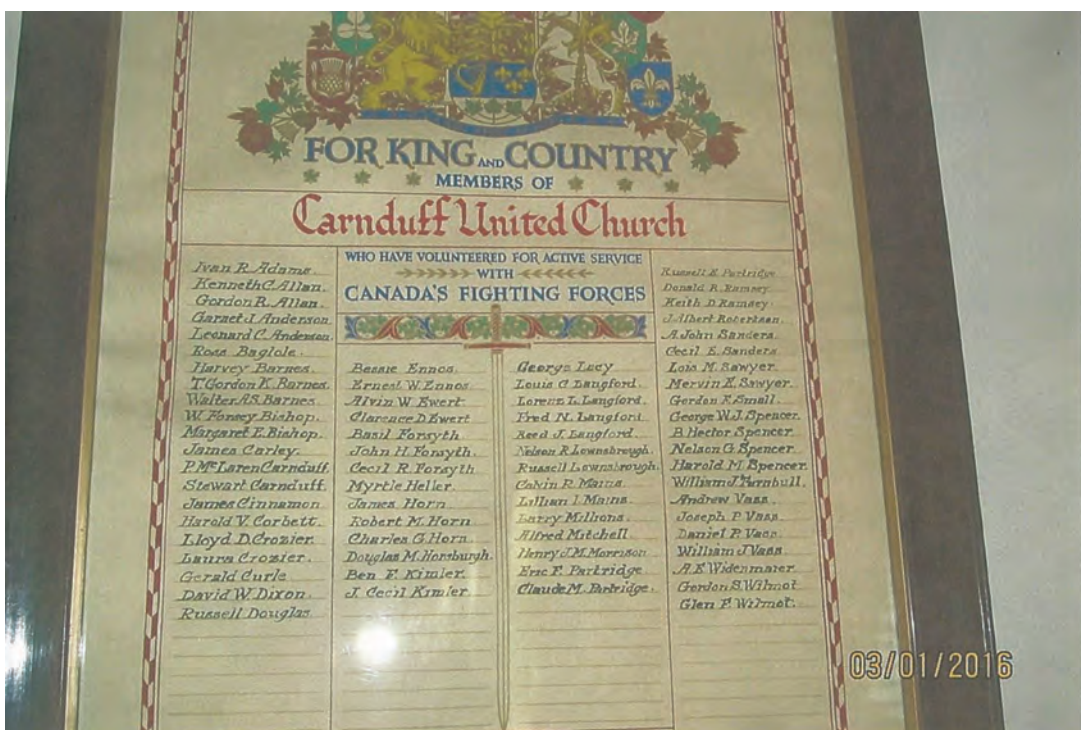 FOR KING AND COUNTRY
MEMBERS OF
Carnduff United Church
WHO HAVE VOLUNTEERED FOR ACTIVE SERVICE
WITH
CANADA'S FIGHTING FORCES
Ivan R. Adams.
Kenneth C. Allan.
Gordon R. Allan.
Garnet J. Anderson.
Leonard C. Anderson.
Ross Baglole.
Harvey Barnes.
T. Gordon K. Barnes.
Walter A.S. Barnes.
W. Forsey Bishop.
Margaret E. Bishop.
James Carley.
P. McLaren Carnduff.
Stewart Carnduff.
James Cinnamon
Harold V. Corbett.
Lloyd D. Crozier.
Laura Crozier.
Gerald Curle
David W. Dixon.
Russell Douglas
Bessie Ennos.
Ernest W. Ennos
Alvin W. Ewert.
Clarence D. Ewert
Basil Forsyth.
John H. Forsyth.
Cecil R. Forsyth
Myrtle Heller.
James Horn.
Robert M. Horn
Charles G. Horn.
Douglas M. Horsburgh.
Ben F. Kimler.
J. Cecil Kimler.
George Lucy
Louis C. Langford.
Lorenz L. Langford.
Fred N. Langford
Reed J. Langford.
Nelson R. Lownsbrough.
Russell Lownsbrough.
Calvin R. Mains.
Lillian I. Mains.
Larry Millions.
Alfred Mitchell
Henry J.M. Morrison
Eric F. Partridge
Claude M. Partridge.
Russell E. Partridge
Donald R. Ramsey
Keith D. Ramsey.
J. Albert Robertson.
A. John Sanders.
Cecil E. Sanders.
Lois M. Sawyer.
Mervin E. Sawyer.
Gordon F. Small.
George W.J. Spencer.
B. Hector Spencer.
Nelson G. Spencer
Harold M. Spencer.
William J. Turnbull.
Andrew Vass.
Joseph P. Vass
Daniel P. Vass.
William J. Vass.
A.E. Widenmaier.
Gordon S. Wilmot
Glen F. Wilmot.
03/01/2016